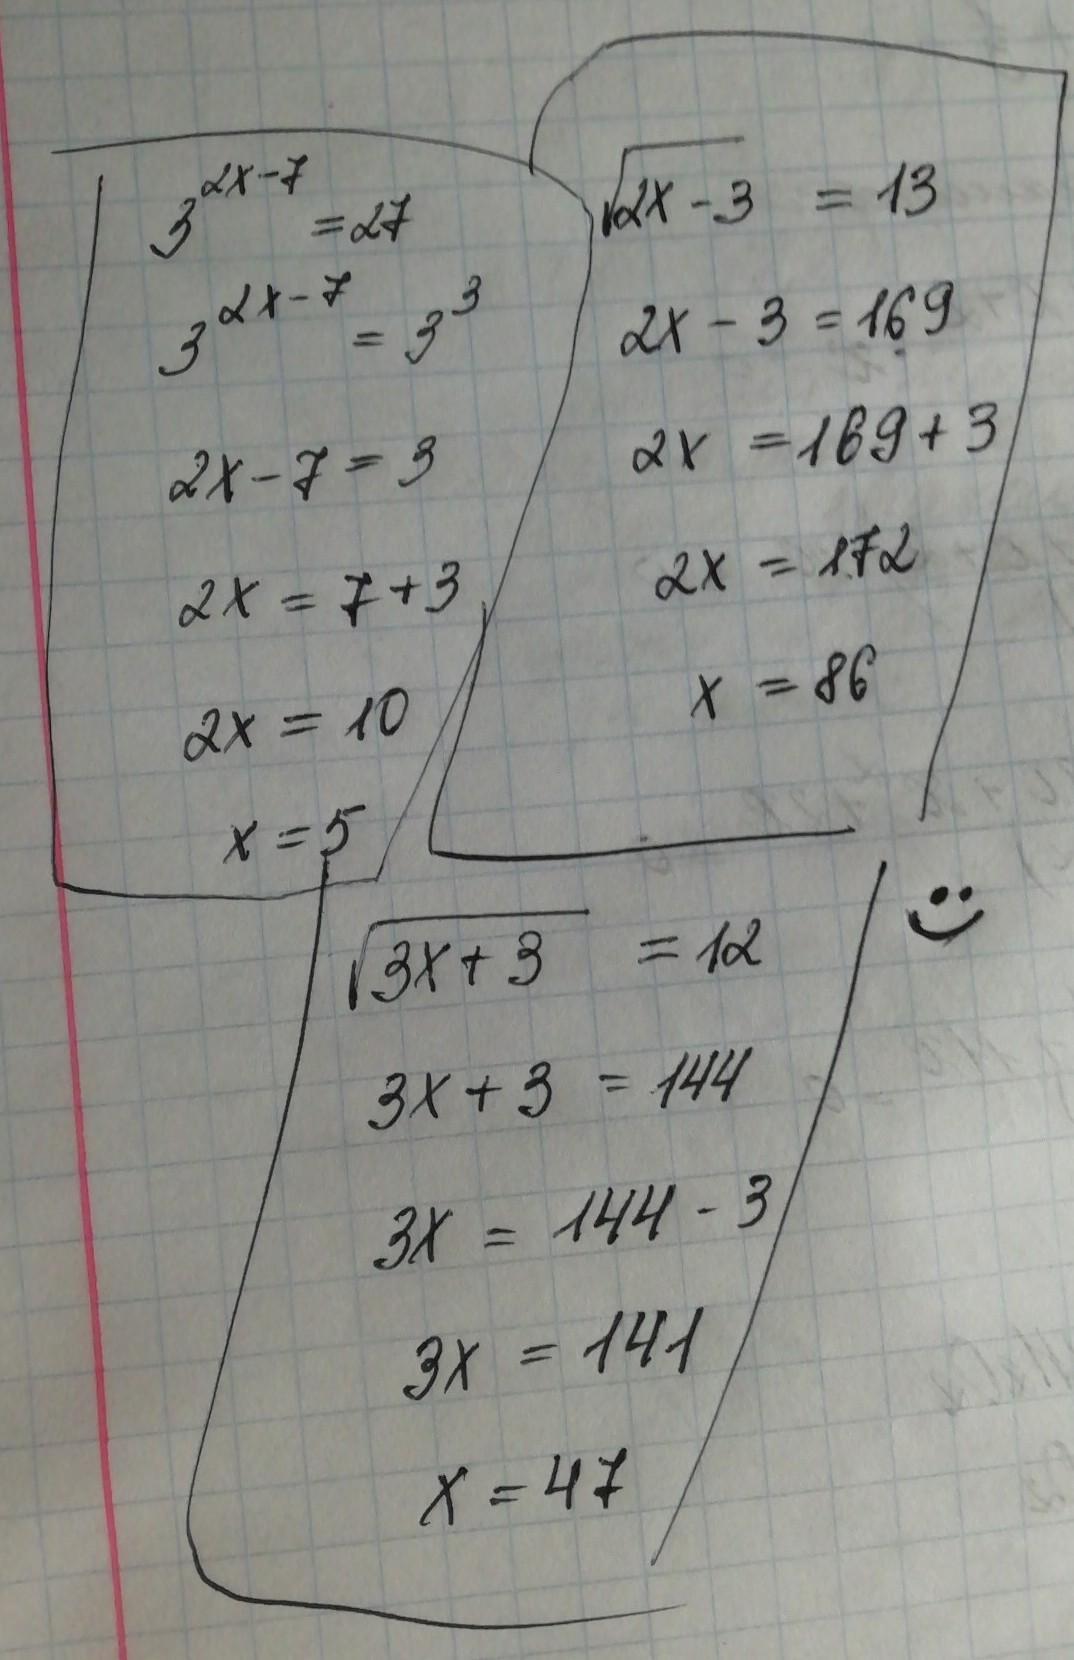 3^{2x-7} = 27
3^{2x-7} = 3^3
2x - 7 = 3
2x = 7 + 3
2x = 10
x = 5
√2x - 3 = 13
2x - 3 = 169
2x = 169 + 3
2x = 172
x = 86
√3x + 3 = 12
3x + 3 = 144
3x = 144 - 3
3x = 141
x = 47